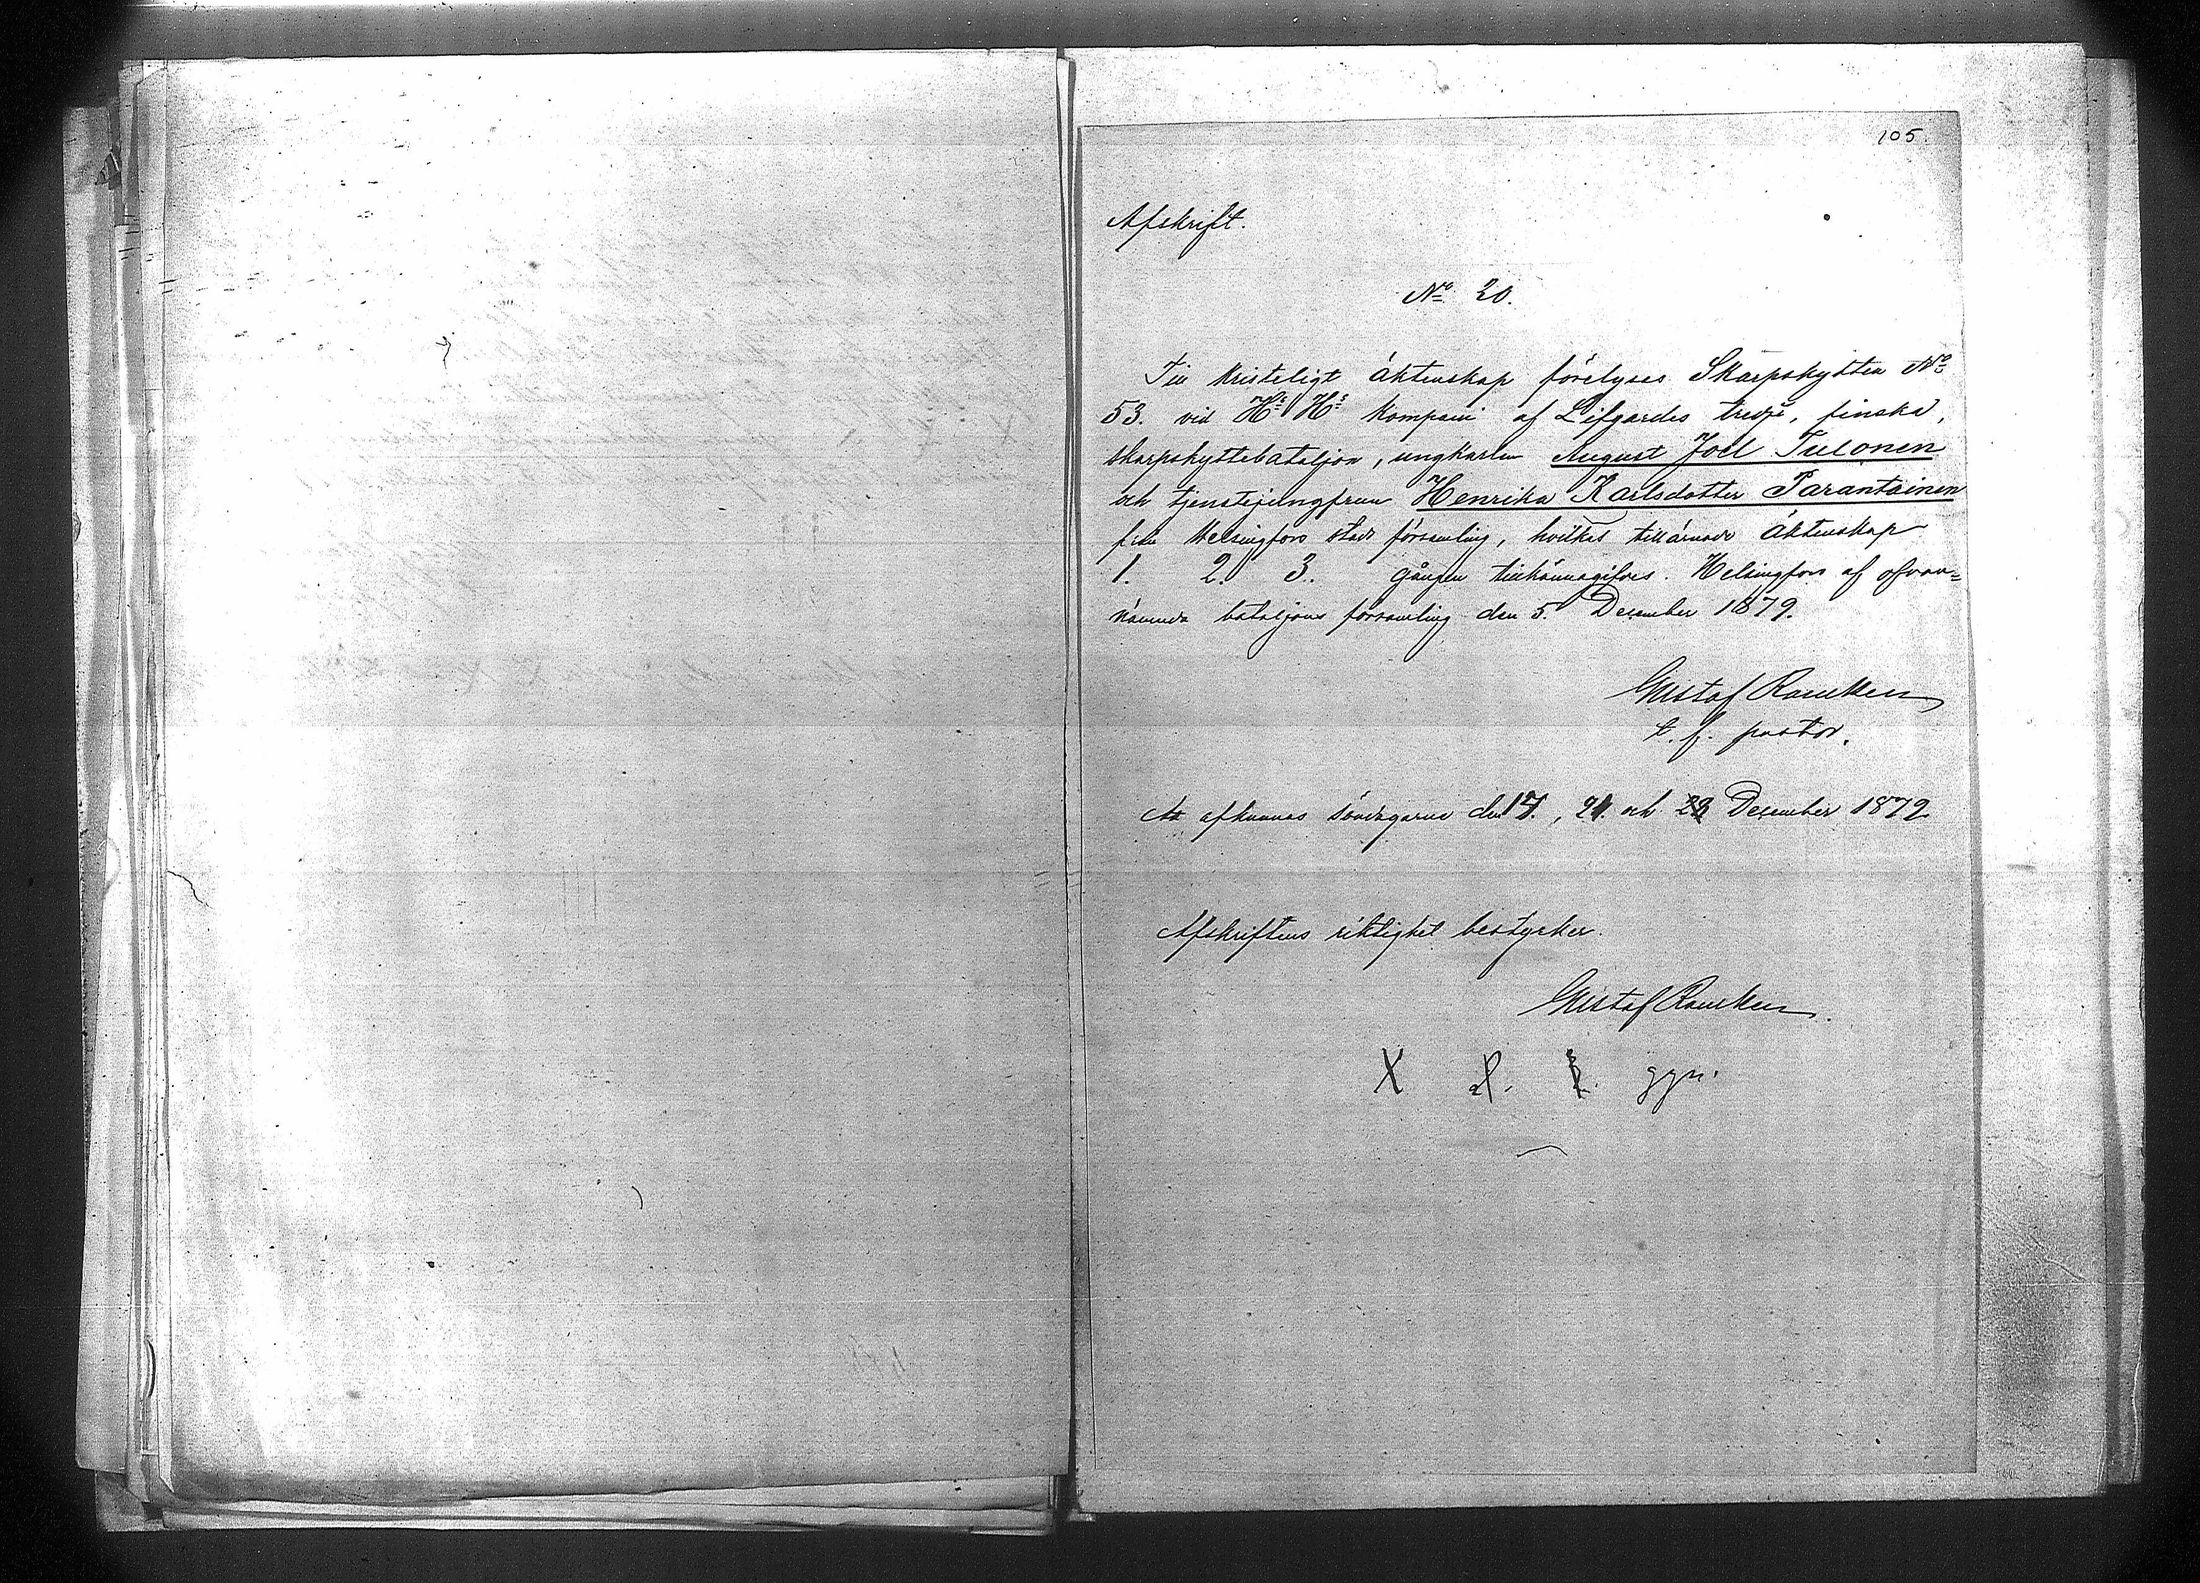 105.
Afskrift.
No 20.
Till kristeligt äktenskap förelyses Skarpskytten No
53. vid Hs Hs kompani af Lifgardes tredje, finska,
skarpskyttebataljon, ungkarlen August Joel Tulonen
och tjenstejungfrun Henrika Karlsdotter Parantainen
från Helsingfors stads församling, hvilkas tillärnade äktenskap
1. 2. 3. gången tillkännagifves. Helsingfors af ofvan=
nämnda bataljons församling den 5. December 1879.
Gustaf Rancken
t. f. pastor.
afkunnas söndagarne den , 21. och December 1879
Afskriftens riktighet bestyrker.
Gustaf Rancken.
X 2. 3. ggn.